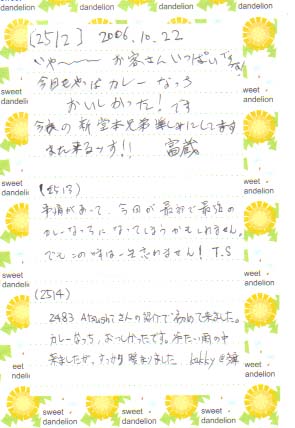 (2512) 2006.10.22
いや〜〜〜 お客さんいっぱいですね
今日もやっぱカレーなっち
おいしかった！です
今夜の新堂本兄弟楽しみにしてます
また来るッす!! 富蔵
(2513)
事情があって、今回が最初で最後の
カレーなっちになってしまうかもしれません。
でもこの味は一生忘れません! T.S
(2514)
2483 Atsushiさんの紹介で初めて来ました。
カレーなっち、おいしかったです。冷たい雨の中
来ましたが、すっかり暖まりました
sweet dandelion
sweet dandelion
sweet dandelion
sweet dandelion
sweet dandelion
sweet dandelion
sweet dandelion
sweet dandelion